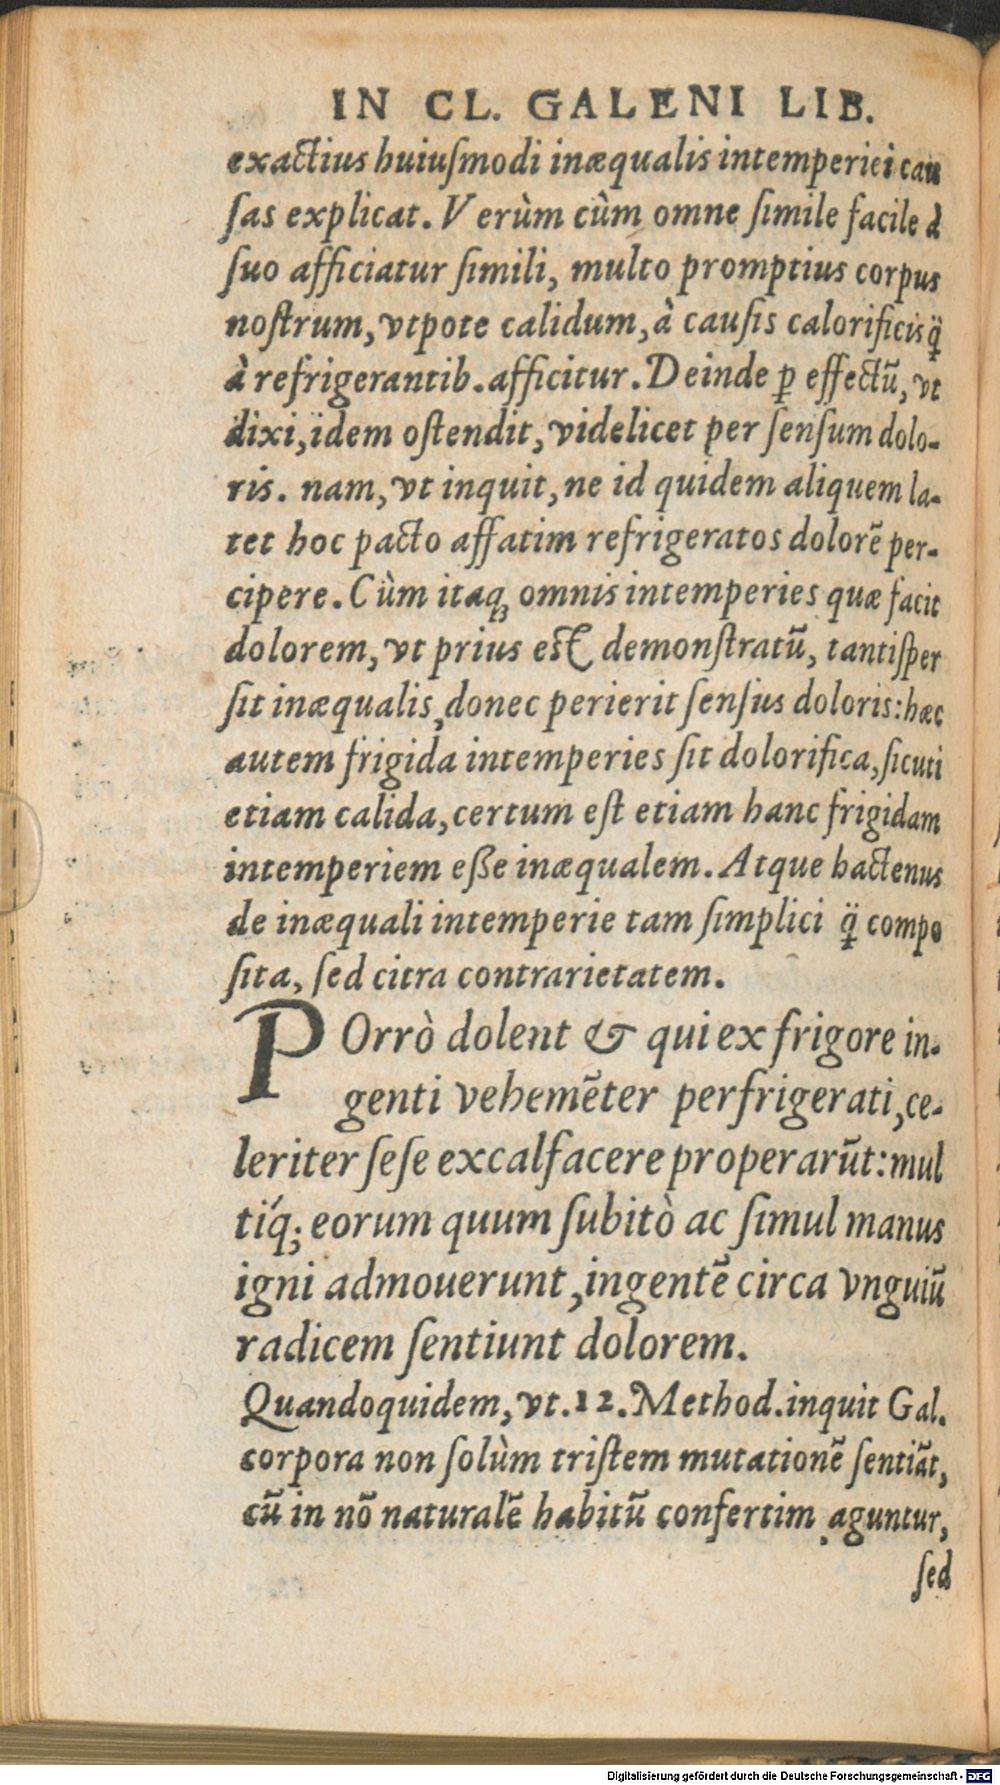 IN CL. GALENI LIB.
exactius huiuſmodi inæqualis intemperiei cau
ſas explicat. Verùm cùm omne ſimile facile à
ſuo afficiatur ſimili, multo promptius corpus
noſtrum, vtpote calidum, à cauſis calorificis q̃
à refrigerantib. afficitur. Deinde ꝑ effectũ, vt
dixi, idem oſtendit, videlicet per ſenſum dolo-
ris. nam, vt inquit, ne id quidem aliquem la-
tet hoc pacto affatim refrigeratos dolorẽ per-
cipere. Cùm itaqꝫ omnis intemperies quæ facit
dolorem, vt prius eſt demonſtratũ, tantiſper
ſit inæqualis, donec perierit ſenſus doloris: hæc
autem frigida intemperies ſit dolorifica, ſicuti
etiam calida, certum eſt etiam hanc frigidam
intemperiem eſſe inæqualem. Atque hactenus
de inæquali intemperie tam ſimplici q̃ compo
ſita, ſed citra contrarietatem.
POrrò dolent & qui ex frigore in-
genti vehemẽter perfrigerati, ce-
leriter ſeſe excalfacere properarũt: mul
tíq; eorum quum ſubitò ac ſimul manus
igni admouerunt, ingentẽ circa vnguiũ
radicem ſentiunt dolorem.
Quandoquidem, vt. 12. Method. inquit Gal.
corpora non ſolùm triſtem mutationẽ ſentiãt,
cũ in nõ naturalẽ habitũ confertim aguntur,
ſed
Digitalisierung gefördert durch die Deutsche Forschungsgemeinschaft - DFG